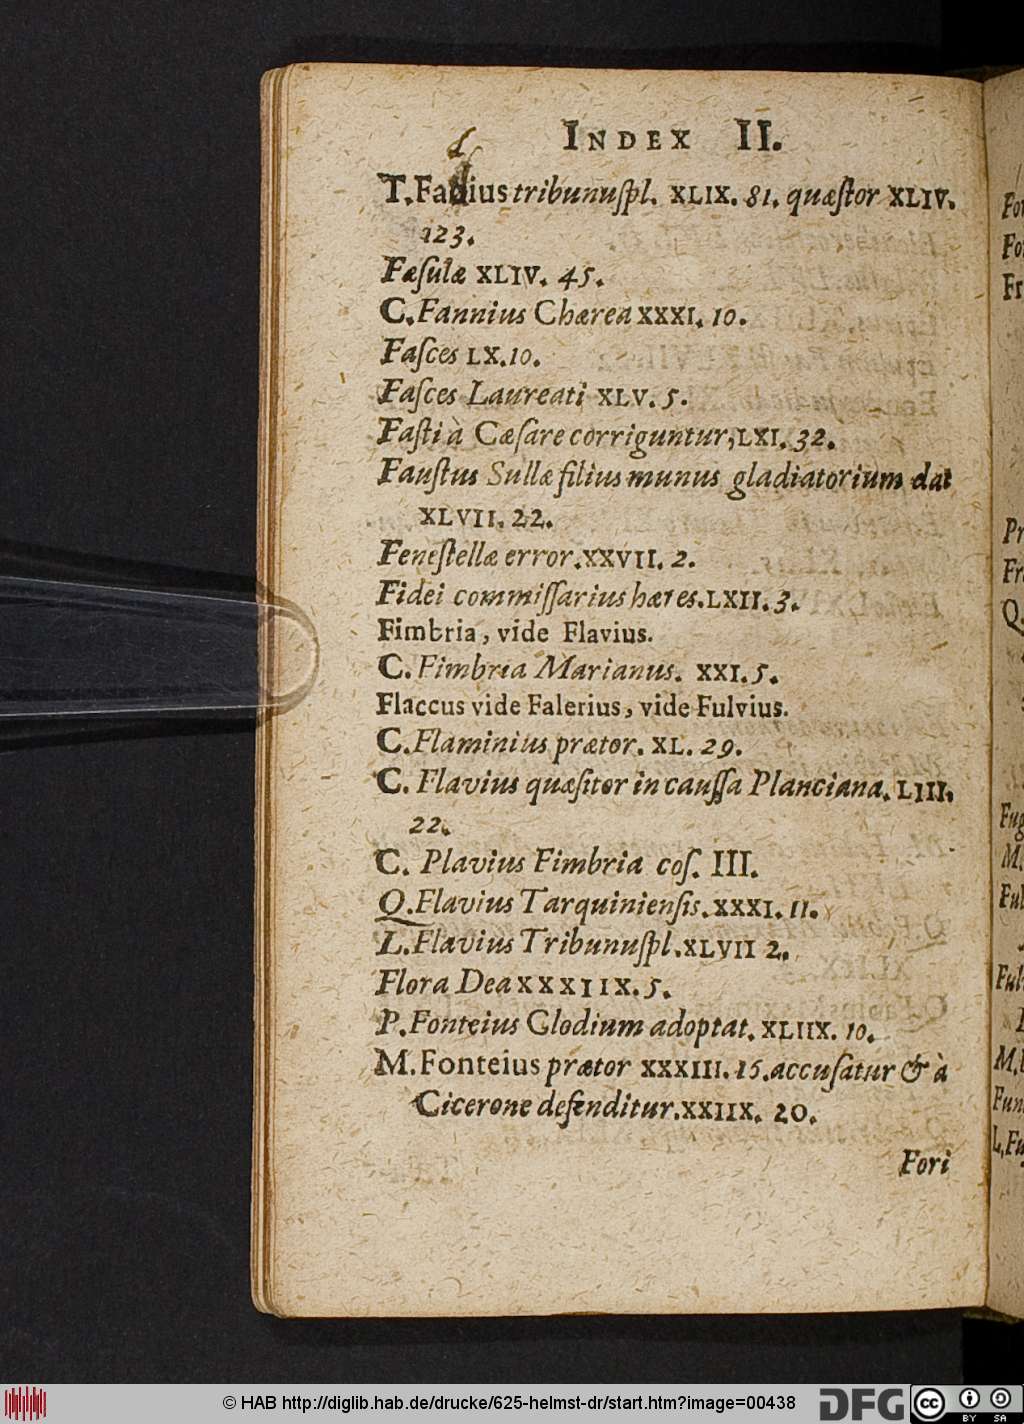 INDEX II.
T.Fadius tribunuſpl. XLIX. 81. quæſtor XLIV.
123.
Fæſulæ XLIV. 45.
C.Fannius Chærea XXXI. 10.
Faſces LX.10.
Faſces Laureati XLV. 5.
Faſti à Cæſare corriguntur,LXI. 32.
Fauſtus Sullæ filius munus gladiatorium dat
XLVII. 22.
Feneſtellæ error.XXVII. 2.
Fidei commiſſarius hæres.LXII.3.
Fimbria, vide Flavius.
C. Fimbria Marianus. XXI.5.
Flaccus vide Falerius, vide Fulvius.
C.Flaminius prætor. XL. 29.
C. Flavius quæſitor in cauſſa Planciana. LIII.
22.
C. Plavius Fimbria coſ. III.
Q.Flavius Tarquinienſis.XXXI.11.
L.Flavius Tribunuſpl.XLVII 2.
Flora Dea XXXIIX.5.
P.Fonteius Clodium adoptat. XLIIX. 10.
M.Fonteius prætor XXXIII.15.accuſatur & à
Cicerone defenditur.XXIIX. 20.
Fori
© HAB http://diglib.hab.de/drucke/625-helmst-dr/start.htm?image=00438
DFG
cc
BY SA